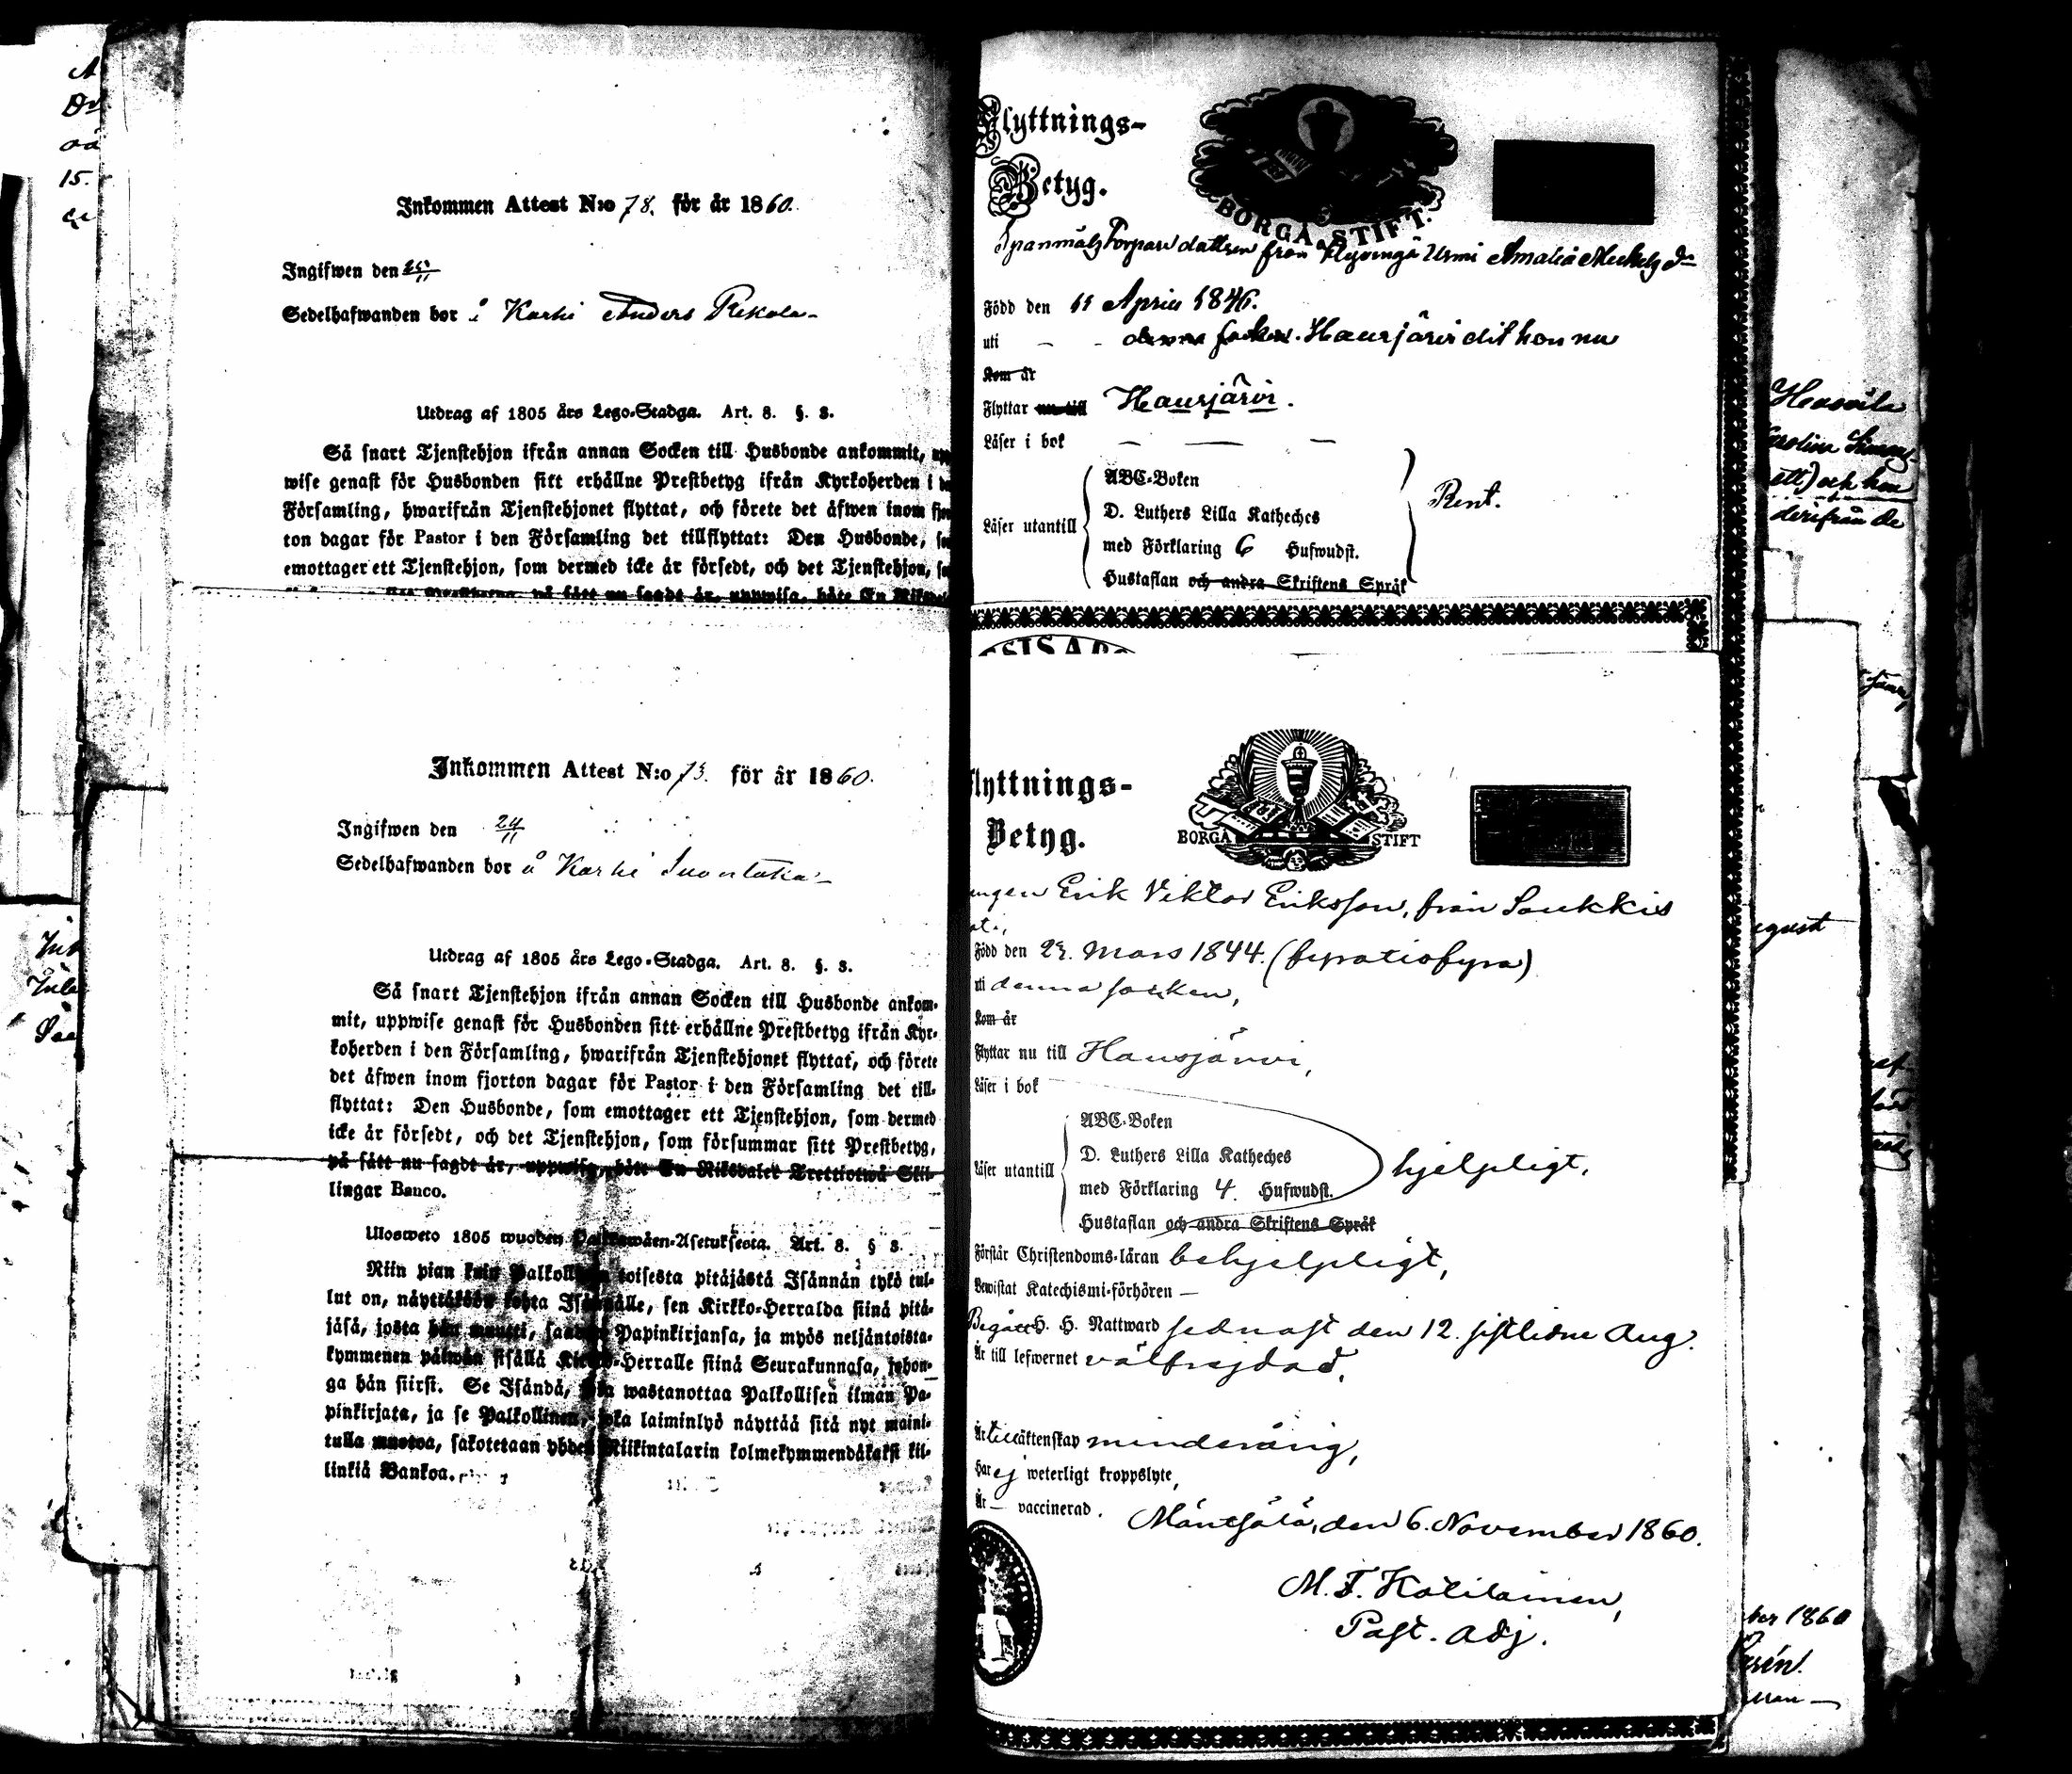 Inkommen Attest N:o 78. för år 1860.
Ingifwen den 25/11
Sedelhafwanden bor å Karhi Anders Rekola
Utdrag af 1805 års Lego-Stadga. Art. 8. §. 3.
Så snart Tjenstehjon ifrån annan Socken till Husbonde ankommit,
wise genast för Husbonden sitt erhållne Prestbetyg ifrån Kyrkoherden i
Församling, hwarifrån Tjenstehjonet flyttat, och förete det äfwen inom
ton dagar för Pastor i den Församling det tillflyttat: Den Husbonde,
emottager ett Tjenstehjon, som dermed icke är försedt, och det Tjenstehjon,
på sätt nu sagdt är, uppwisa, böte En
Inkommen Attest N:o 73. för år 1860.
Ingifwen den 24/11
Sedelhafwanden bor å Karhi
Utdrag af 1805 års Lego-Stadga. Art. 8. §. 3.
Så snart Tjenstehjon ifrån annan Socken till Husbonde ankom-
mit, uppwise genast för Husbonden sitt erhållne Prestbetyg ifrån Kyr-
koherden i den Församling, hwarifrån Tjenstehjonet flyttat, och förete
det äfwen inom fjorton dagar för Pastor i den Församling det till-
flyttat: Den Husbonde, som emottager ett Tjenstehjon, som dermed
icke är försedt, och det Tjenstehjon, som försummar sitt Prestbetyg,
på sätt nu sagdt är, uppwisa, böte En Riksdaler Trettiotwå Skil-
lingar Banco.
Ulosweto 1805 wuoden Palkkawäen-Asetuksesta. Art. 8. § 3.
Niin pian kuin Palkollinen toisesta pitäjästä Isännän tykö tul-
lut on, näyttäköön kohta Isännälle, sen Kirkko-Herralda siinä pitä-
jäsä, josta hän muutti, saadun Papinkirjansa, ja myös neljäntoista-
kymmenen päiwän sisällä Kirkko-Herralle siinä Seurakunnasa, johon-
ga hän siirsi. Se Isändä, joka wastanottaa Palkollisen ilman Pa-
pinkirjata, ja se Palkollinen, joka laiminlyö näyttää sitä nyt maini-
tulla muotoa, sakotetaan yhden Riikintalarin kolmekymmendäkaksi kil-
linkiä Bankoa.
Flyttnings-
Betyg.
BORGÅ STIFT.
Torpare dottren från Amalia
Född den 11 April 1846.
uti - - denna socken. Hausjärvi dit hon nu
Kom år
Flyttar nu till Hausjärvi.
Läser i bok — — —
Läser utantill
ABC-Boken
D. Luthers Lilla Katheches
med Förklaring 6 Hufwudst.
Hustaflan och andra Skriftens Språk
Rent.
Flyttnings-
Betyg.
BORGÅ STIFT
Erik Viktor Eriksson, från Soukkis
Född den 23. Mars 1844. (fyratiofyra)
uti denna socken,
Kom år
Flyttar nu till Hausjärvi,
Läser i bok
Läser utantill
ABC-Boken
D. Luthers Lilla Katheches
med Förklaring 4. Hufwudst.
Hustaflan och andra Skriftens Språk
hjelpligt,
Förstår Christendoms-läran behjelpligt,
Bewistat Katechismi-förhören —
Begått H. H. Nattward sednast den 12. sistlidne Aug.
Är till lefwernet välfrejdad.
Är till äktenskap minderårig,
Har ej weterligt kroppslyte,
Är — vaccinerad.
Mäntsälä, den 6. November 1860.
M. F. Kotilainen,
Past. adj.